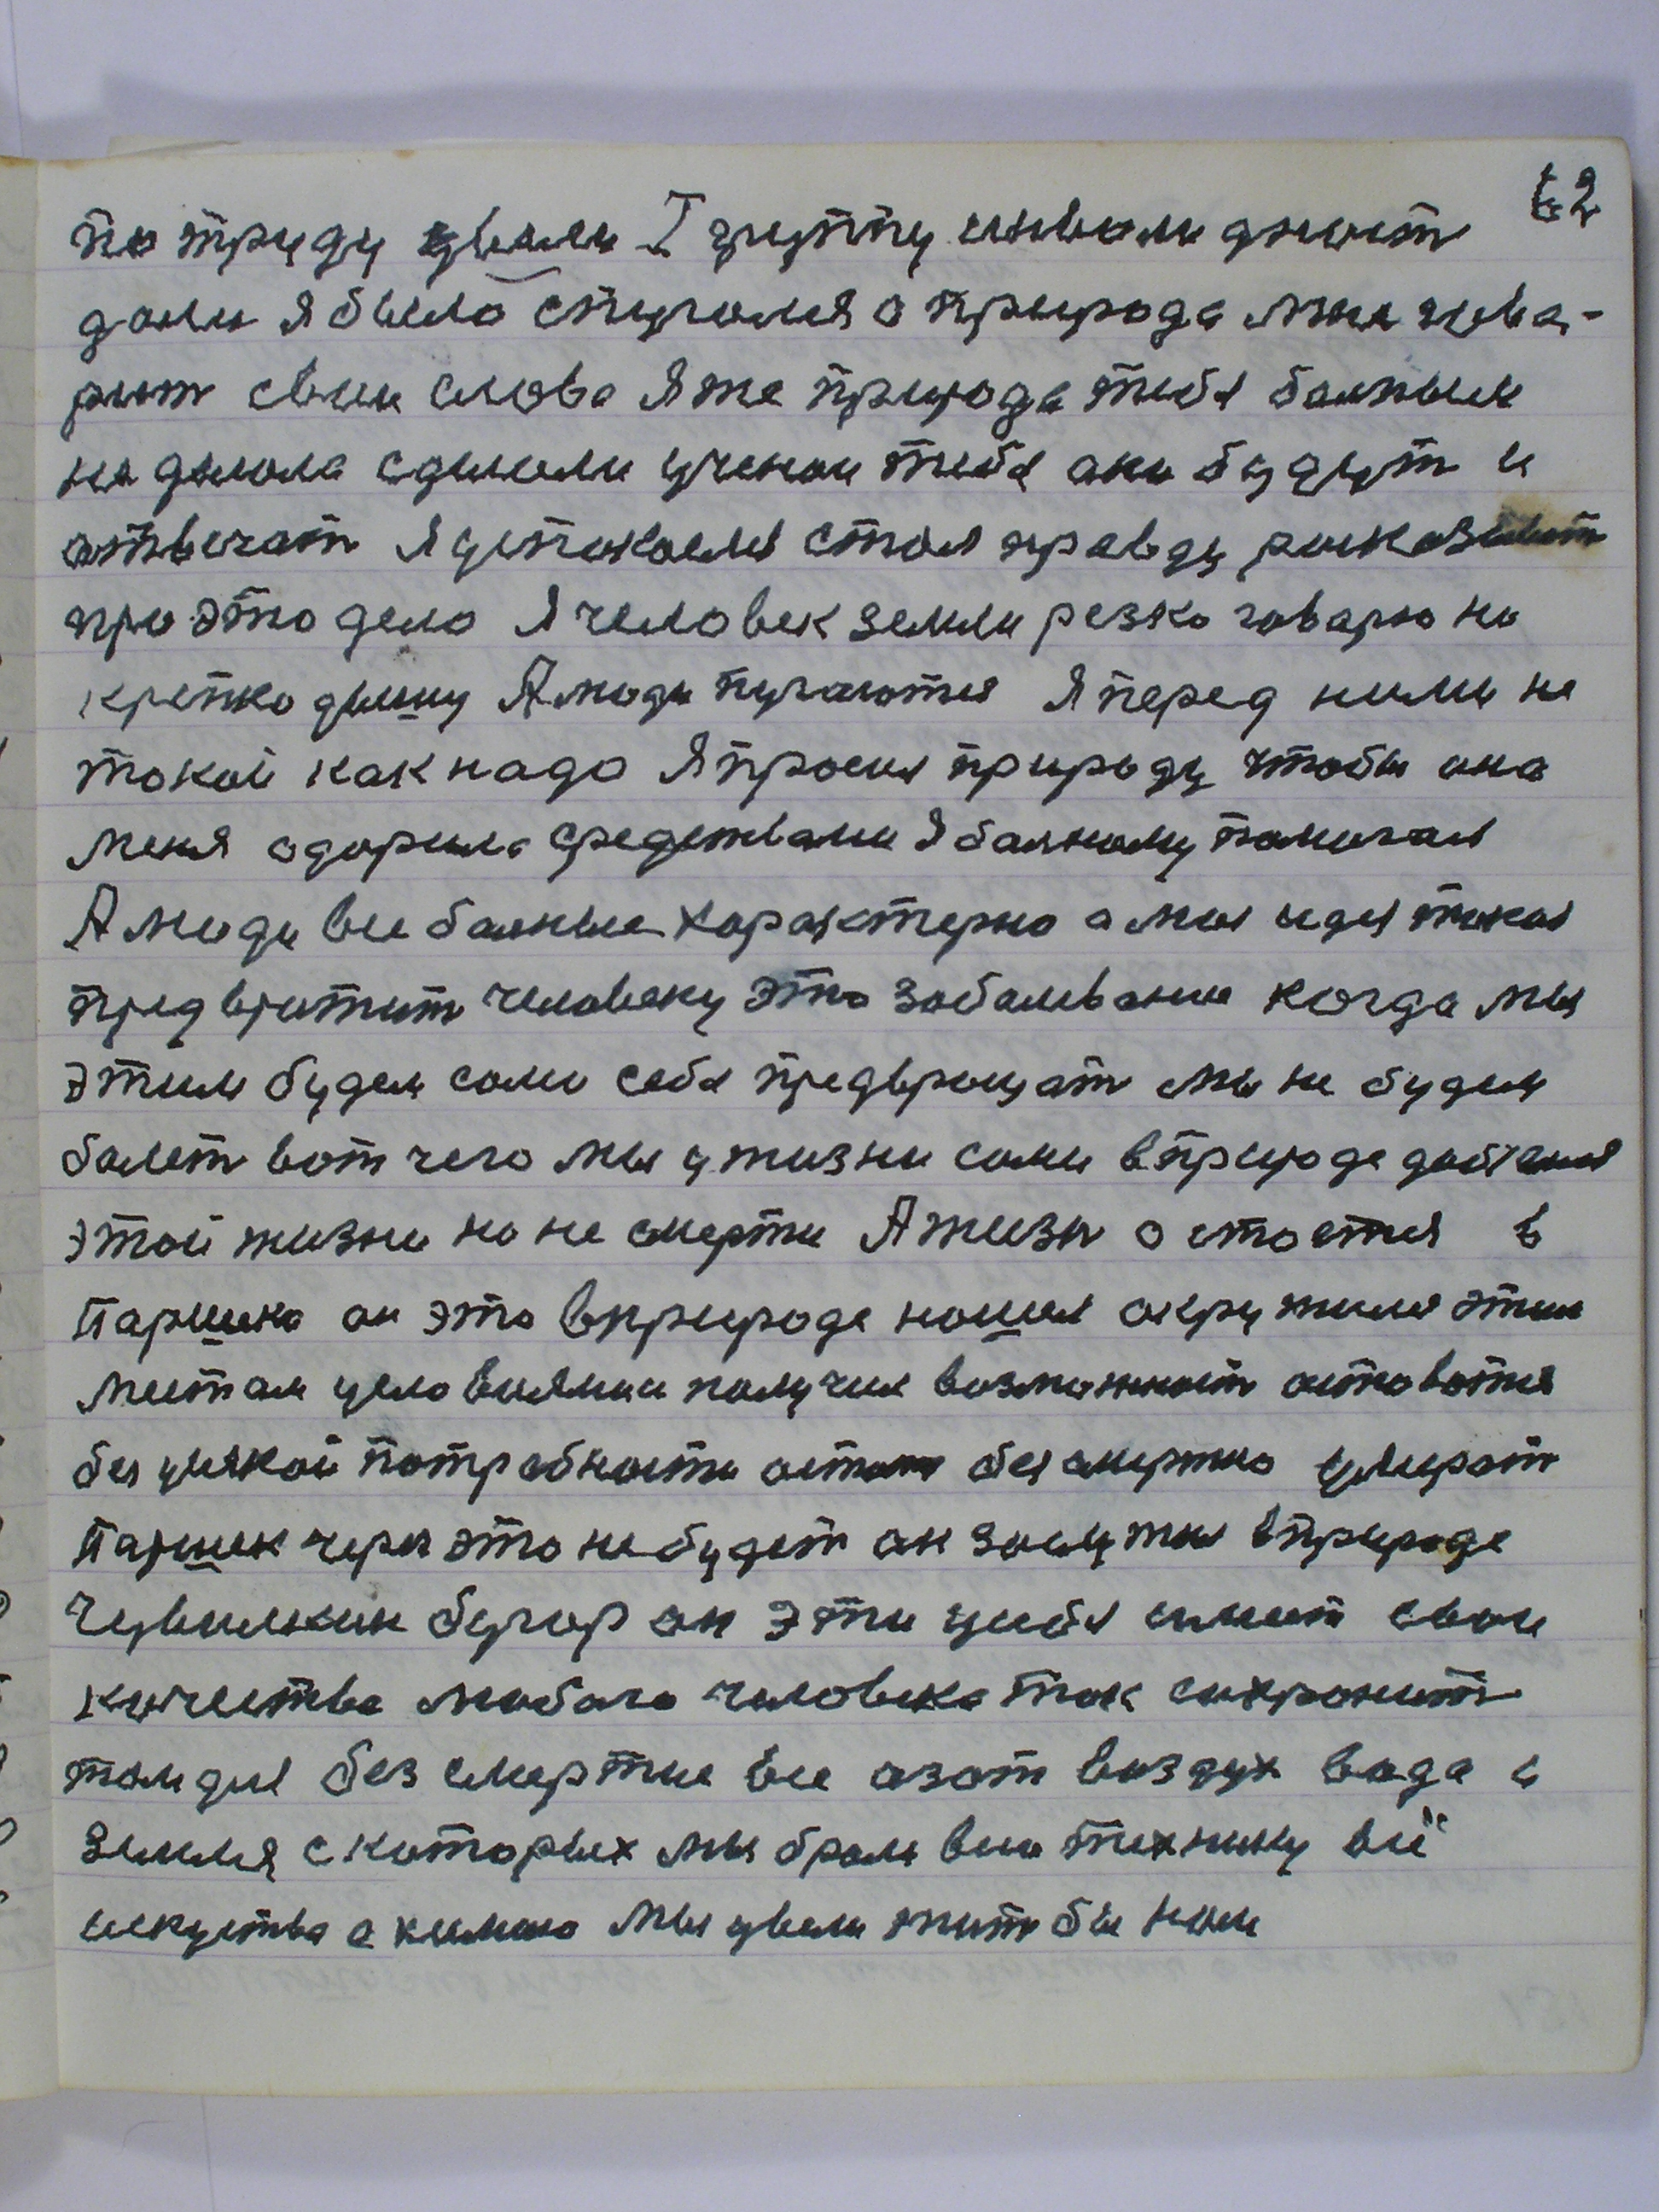 62
по труду ували I групу инвали дност
дали я было спугался а природа мне гова-
рит свои слова Я же природа тибя балным
не дилала сдилали ученаи тибя ани будут и
атвечат я успокоился стал правду расказыват
про это дело Я человек земли резко говарю но
крепко дышу А люди пугаются Я перед ними не
такой как надо Я просил природу чтобы она
меня одорила средствами Я балному помогал
А люди все балные характерно а моя идея такая
предвратит человеку это заболевание когда мы
этим будем сами себя предвращат мы не будем
болет вот чего мы у жизни сами в природе добемся
этой жизни но не смерти А жизн остается в
Паршика он это в природе нашел окружился этим
местам условиями получил возможност оставатся
без усякой потребности астат безсмертно умират
Паршек через это не будет он заслужил в природе
Чувилкин бугор он эти усибя имеит сваи
качества любого человека так сахронит
там дух без смертие все азот воздух вада и
земля с каторых мы брали всю технику всё
искуства а химию мы увели жит бы нам